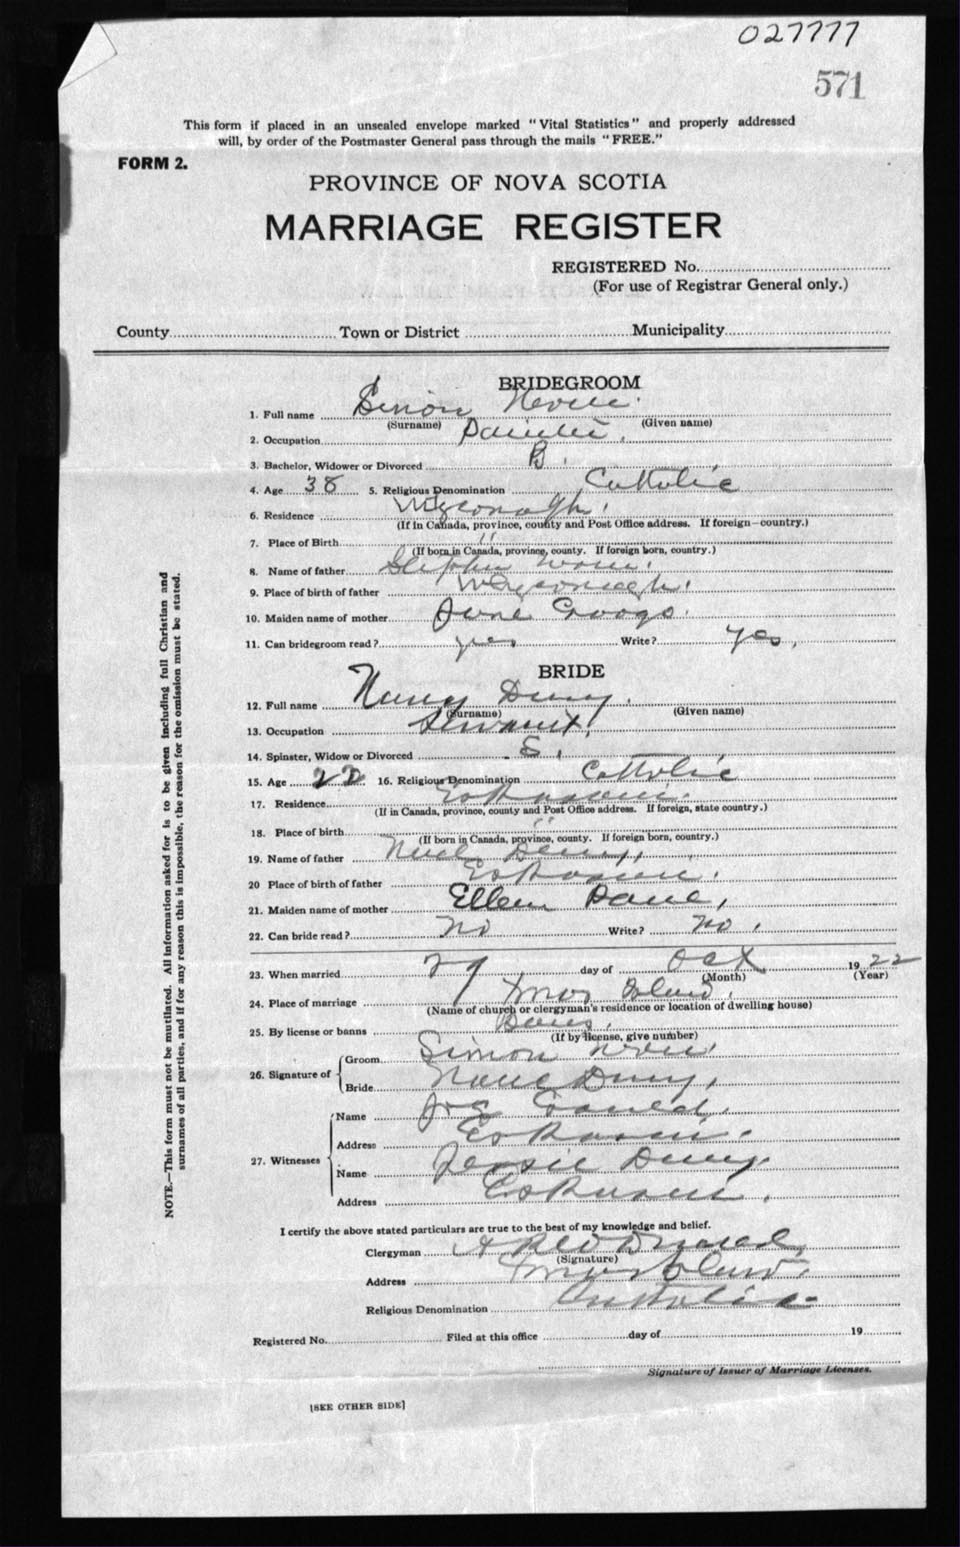 027777
571
This form if placed in an unsealed envelope marked "Vital Statistics" and properly addressed
will, by order of the Postmaster General pass through the mails "FREE."
FORM 2.
PROVINCE OF NOVA SCOTIA
MARRIAGE REGISTER
REGISTERED No.
(For use of Registrar General only.)
County Town or District Municipality
BRIDEGROOM
1. Full name Simon Nevin.
(Surname) (Given name)
2. Occupation
3. Bachelor, Widower or Divorced B.
4. Age 38 5. Religious Denomination Catholic
6. Residence Wycomagh.
(If in Canada, province, county and Post Office address. If foreign—country.)
7. Place of Birth "
(If born in Canada, province, county. If foreign born, country.)
8. Name of father Stephen
9. Place of birth of father Wycomagh.
10. Maiden name of mother Googo.
11. Can bridegroom read? yes Write? yes.
BRIDE
12. Full name Denny.
(Surname) (Given name)
13. Occupation Servant.
14. Spinster, Widow or Divorced S.
15. Age 22 16. Religious Denomination Catholic
17. Residence Eskasoni.
(If in Canada, province, county and Post Office address. If foreign, state country.)
18. Place of birth "
(If born in Canada, province, county. If foreign born, country.)
19. Name of father Noel Denny,
20 Place of birth of father Eskasoni.
21. Maiden name of mother Ellen Paul,
22. Can bride read? No Write? No.
23. When married 29 day of Oct 1922
(Month) (Year)
24. Place of marriage Island.
(Name of church or clergyman's residence or location of dwelling house)
25. By license or banns Banns.
(If by license, give number)
26. Signature of
Groom Simon
Bride Denny,
27. Witnesses
Name Joe Gould.
Address Eskasoni.
Name Jessie Denny.
Address Eskasoni.
I certify the above stated particulars are true to the best of my knowledge and belief.
Clergyman A R McDonald,
(Signature)
Address Island.
Religious Denomination Catholic
Registered No. Filed at this office day of 19
Signature of Issuer of Marriage Licenses.
[SEE OTHER SIDE]
NOTE.—This form must not be mutilated. All information asked for is to be given including full Christian and
surnames of all parties, and if for any reason this is impossible, the reason for the omission must be stated.